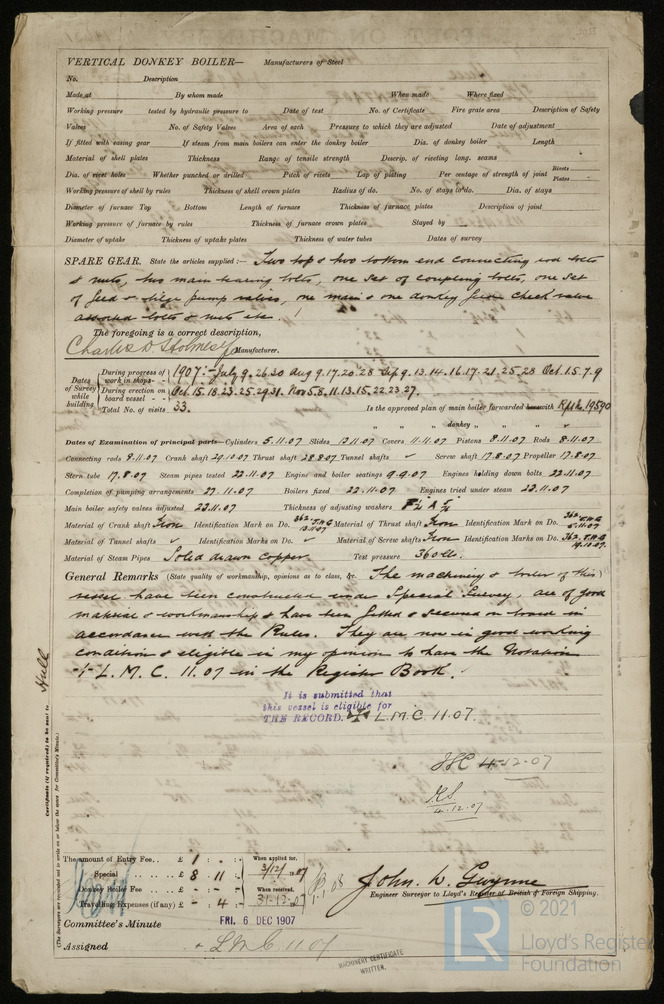 VERTICAL DONKEY BOILER— Manufacturers of Steel
No. Description
Made at By whom made When made Where fixed
Working pressure tested by hydraulic pressure to Date of test No. of Certificate Fire grate area Description of Safety
Valves No. of Safety Valves Area of each Pressure to which they are adjusted Date of adjustment
If fitted with easing gear If steam from main boilers can enter the donkey boiler Dia. of donkey boiler Length
Material of shell plates Thickness Range of tensile strength Descrip. of riveting long. seams
Dia. of rivet holes Whether punched or drilled Pitch of rivets Lap of plating Per centage of strength of joint Rivets Plates
Working pressure of shell by rules Thickness of shell crown plates Radius of do. No. of stays to do. Dia. of stays
Diameter of furnace Top Bottom Length of furnace Thickness of furnace plates Description of joint
Working pressure of furnace by rules Thickness of furnace crown plates Stayed by
Diameter of uptake Thickness of uptake plates Thickness of water tubes Dates of survey
SPARE GEAR. State the articles supplied:— Two top & two bottom end connecting rod bolts
& nuts, two main bearing bolts, one set of coupling bolts, one set
of feed & bilge pump valves, one main & one donkey feed check valve
assorted bolts & nuts etc
The foregoing is a correct description,
Charles D Holmes & Co Manufacturer.
Dates of Survey while building
During progress of work in shops - - 1907:- July 9. 26. 30 Aug 9. 17. 20. 28 Sep 9. 13. 14. 16. 17. 21. 25. 28 Oct. 1. 5. 7. 9
During erection on board vessel - - Oct. 15. 18. 23. 25. 29. 31. Nov 5. 8. 11. 13. 15. 22. 23. 27.
Total No. of visits 33. Is the approved plan of main boiler forwarded herewith
" " " donkey " " "
Dates of Examination of principal parts—Cylinders 5.11.07 Slides 13.11.07 Covers 11.11.07 Pistons 8.11.07 Rods 8.11.07
Connecting rods 8.11.07 Crank shaft 29.10.07 Thrust shaft 28.8.07 Tunnel shafts ✓ Screw shaft 17.8.07 Propeller 17.8.07
Stern tube 17.8.07 Steam pipes tested 22.11.07 Engine and boiler seatings 9.9.07 Engines holding down bolts 22.11.07
Completion of pumping arrangements 27.11.07 Boilers fixed 22.11.07 Engines tried under steam 23.11.07
Main boiler safety valves adjusted 23.11.07 Thickness of adjusting washers
Material of Crank shaft Iron Identification Mark on Do. 362 T.H.G Material of Thrust shaft Iron Identification Mark on Do. 362 T.H.G
Material of Tunnel shafts ✓ Identification Marks on Do. ✓ Material of Screw shafts Iron Identification Marks on Do. 362 T.H.G
Material of Steam Pipes Solid drawn copper Test pressure 360 lbs.
General Remarks (State quality of workmanship, opinions as to class, &c. The machinery & boiler of this
vessel have been constructed under Special Survey, are of good
material & workmanship & have been fitted & secured on board in
accordance with the Rules. They are now in good working
condition & eligible in my opinion to have the Notation
+ L. M. C. 11. 07 in the Register Book.
It is submitted that
this vessel is eligible for
THE RECORD. + L.M.C. 11.07.
4.12.07
4.12.07
Certificate (if required) to be sent to Hull
(The Surveyors are requested not to write on or below the space for Committee's Minute.)
The amount of Entry Fee.. £ 1 : - : When applied for,
Special .. .. £ 8 : 11 : 3/12/07
Donkey Boiler Fee .. .. £ - : - : When received,
Travelling Expenses (if any) £ - : 4 : 31.12.07
John W. Gwynne
Engineer Surveyor to Lloyd's Register of British & Foreign Shipping.
Committee's Minute FRI. 6 DEC 1907
Assigned + L M C 11.07
MACHINERY CERTIFICATE
WRITTEN.
LR © 2021
Lloyd's Register
Foundation